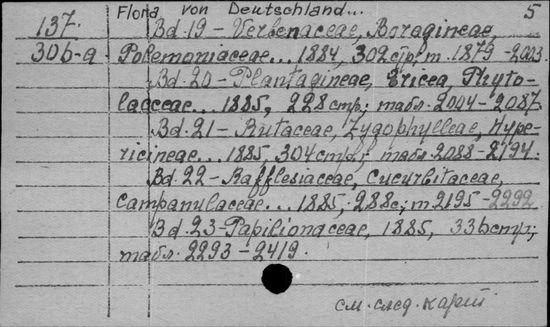 Flora von Deutschland... 5
137. Bd. 19 - Verbenaceae, Boragineae,
306-a Polemoniaceae... 1884, 302 стр; т. 1879-2003.
Bd. 20 - Plantagineae, Ericea, Phyto-
laceae... 1885, 228 стр; табл. 2004-2087.
Bd. 21 - Rutaceae, Zygophylleae, Hype-
ricineae... 1885, 304 стр.; табл. 2088-2194.
Bd. 22 - Rafflesiaceae, Cucurbitaceae,
Campanulaceae... 1885; 288с; т 2195-2292
Bd. 23 - Papilionaceae, 1885, 336 стр;
табл. 2293-2419.
см. след. карт